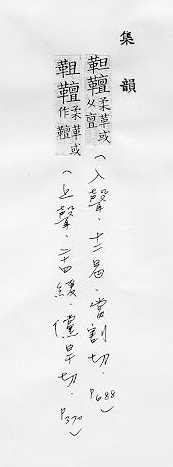 集韻
靼䩶柔革或从亶(入聲.十二曷.當割切.P688)
靼䩶柔革或作䩶(上聲.二十四緩.儻旱切.P370)